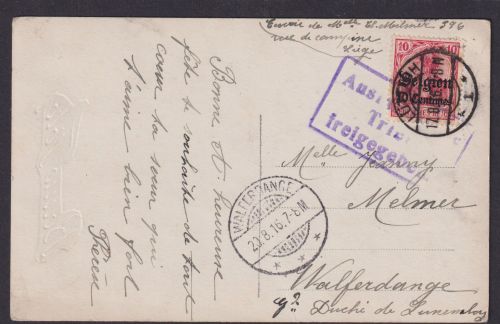 Envoi de Mlle El. Melmer 396
rue de campine
Liège
Bonne et heureuse
fête te souhaite de tout
cœur ta sœur qui
t'aime bien fort
10 10
Belgien
10 Centimes
LÜTTICH
freigegeben
WALFERDANGE
20.8.16.7-8N
Melle Jeanny
Melmer
Walferdange
Duché de Luxembourg